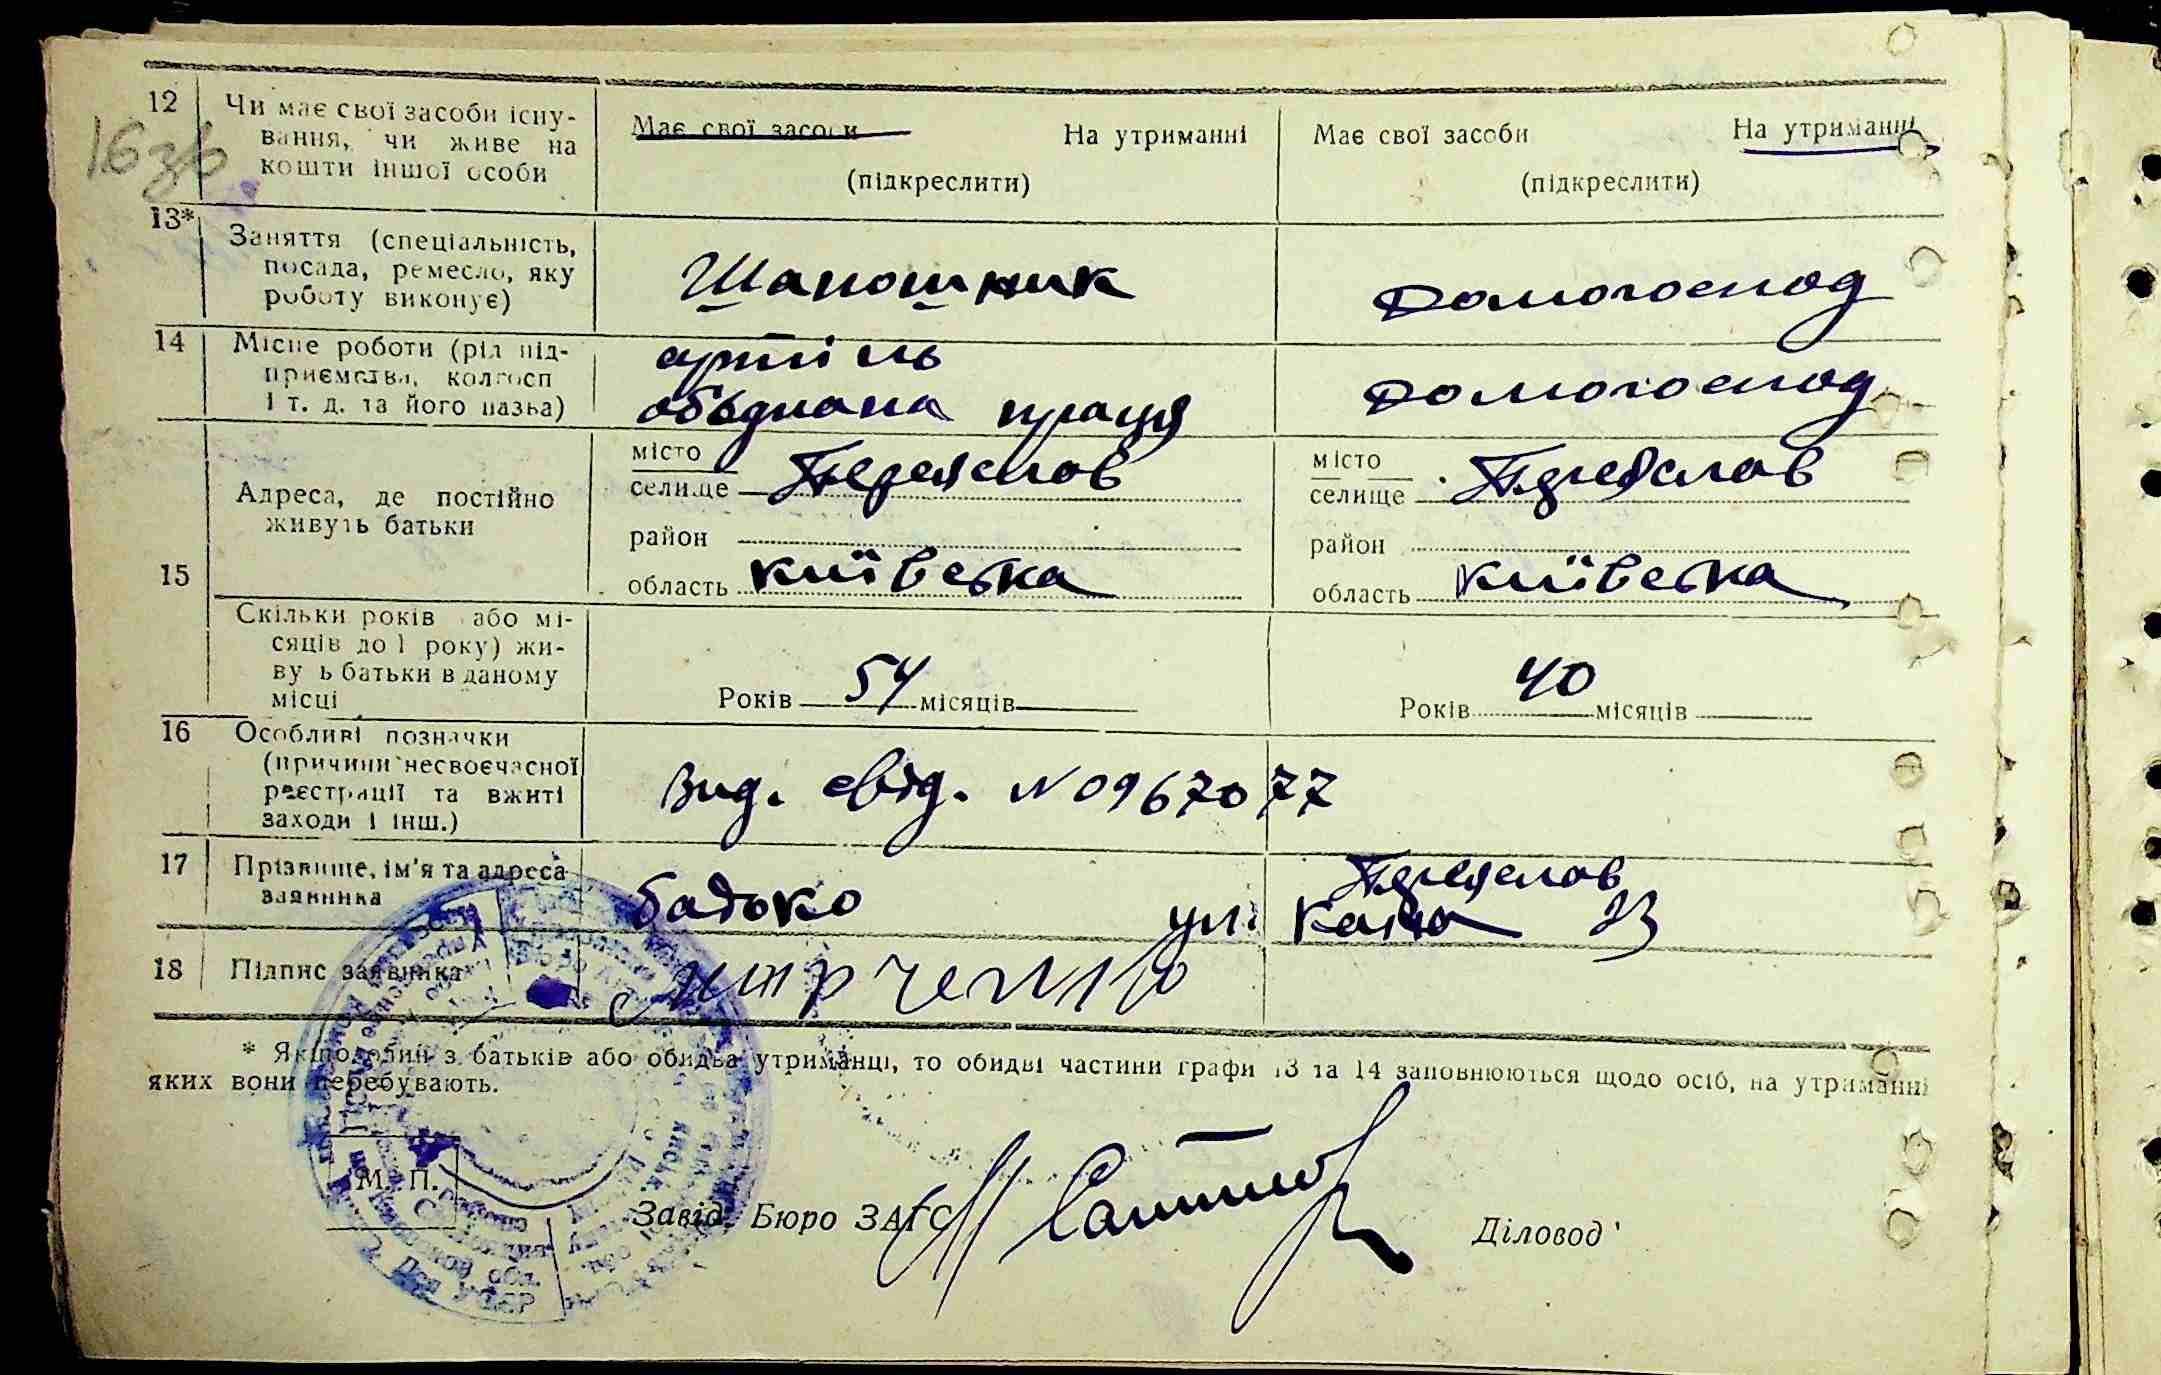 16 зв
12
Чи має свої засоби існу-
вання, чи живе на
кошти іншої особи
Має свої засоби
На утриманні
(підкреслити)
Має свої засоби
На утриманні
(підкреслити)
13*
Заняття (спеціальність,
посада, ремесло, яку
роботу виконує)
Шапошник
Домогоспод
14
Місце роботи (ріл під-
приємства, колгосп
і т. д. та його назва)
артіль
обьднана праця
Домогоспод
15
Адреса, де постійно
живуть батьки
місто
селище Переяслов
район
область Київська
місто
селище Переяслов
район
область Київська
Скільки років або мі-
сяців до 1 року) жи-
ву ь батьки в даному
місці
Років 54 місяців
Років 40 місяців
16
Особливі позначки
(причини несвоєчасної
реєстрації та вжиті
заходи і інш.)
Вид. свід. N 0967077
17
Прізвище, ім'я та адреса
заявника
батько
Переяслов
ул.
23
18
Підпис заявника
* Якщо один з батьків або обидва утриманці, то обидві частини графи 13 та 14 заповнюються щодо осіб, на утриманні
яких вони перебувають.
М. П.
Завід. Бюро ЗАГС
Діловод